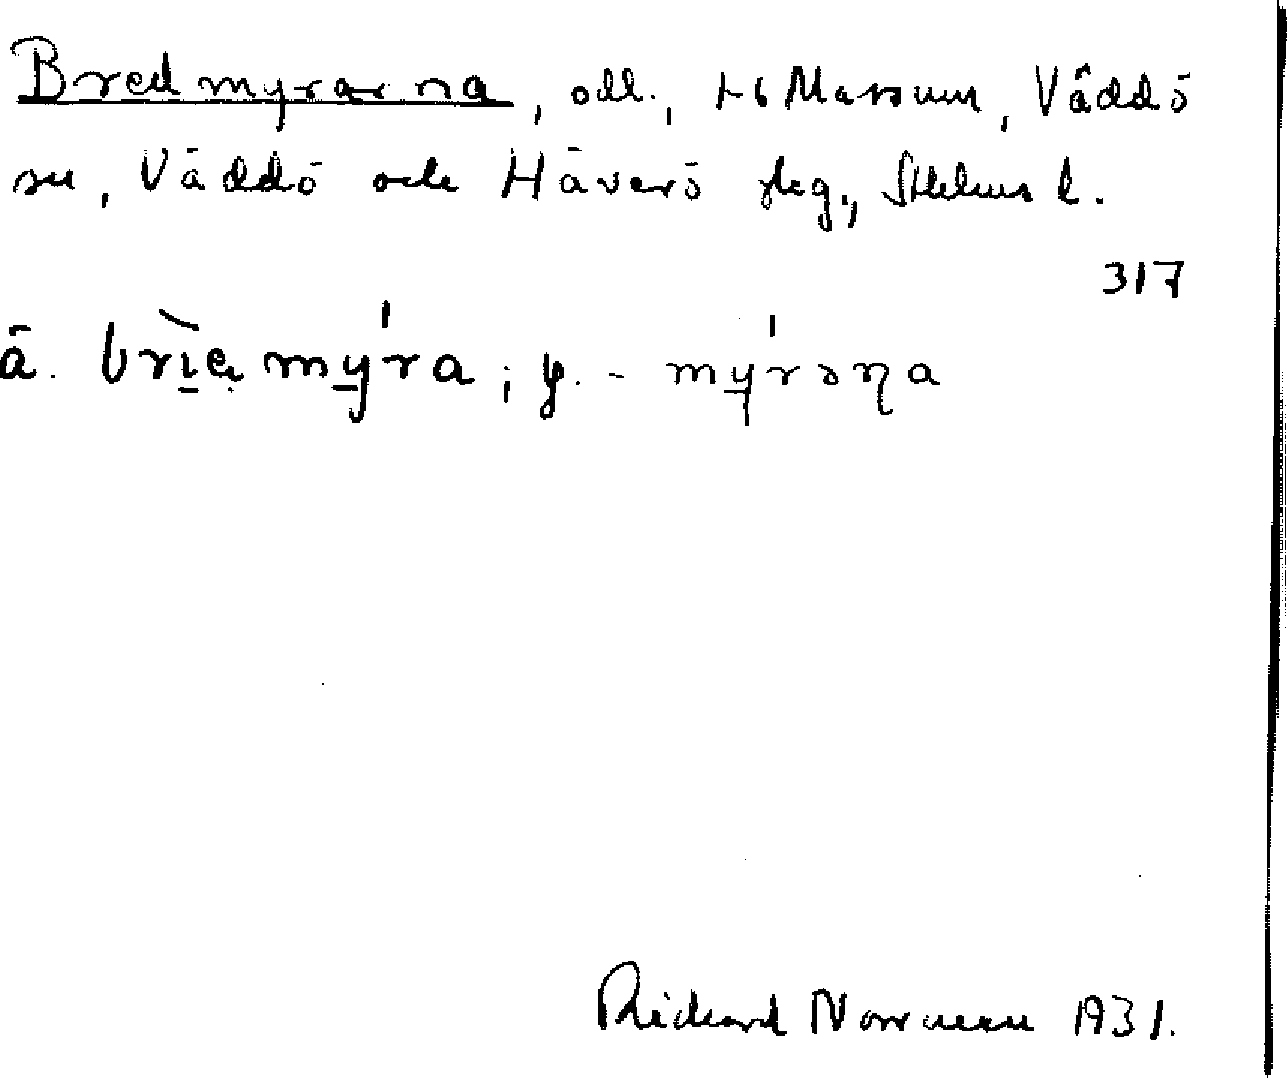 Bredmyrarna, odl., t. Massum, Väddö
sn, Väddö och Häverö skg., Sthlms l.
317
ä. brìe̯mýra; y. - mýrəɳa
Rickard Norrman 1931.